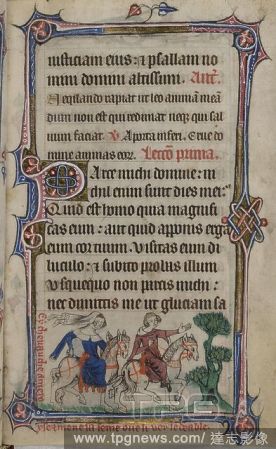 iusticiam eius: ⁊ psallam no
mini domini altissimi. Añ.
Neq̃ando rapiat ut leo animam meā
dum non est qui redimat neq; qui sal
uum faciat. V̷ A porta inferi. Erue do
mine animas eor. Lectio prima.
Parce michi domine: ni
chil enim sunt dies mei.
Quid est homo quia magnifi
cas eum: aut quid apponis erga
eum cor tuum. Visitas eum di
luculo: ⁊ subito probas illum
Usquequo non parcis michi:
nec dimittis me ut gluciam sa
TPG
www.tpgnews.com / 達志影像